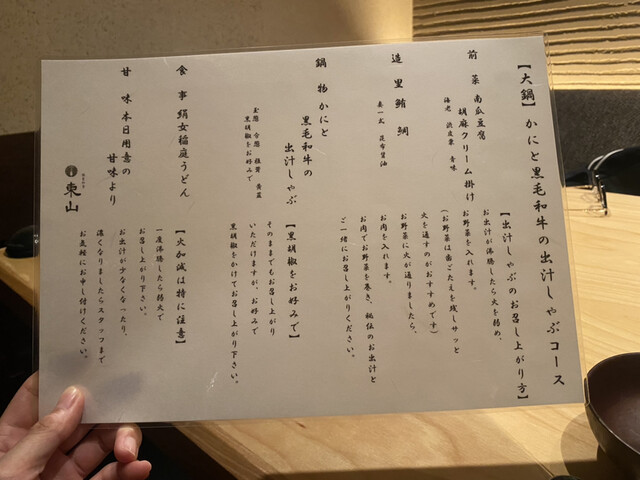 【大鍋】かにと黒毛和牛の出汁しゃぶコース
前菜 南瓜豆腐
胡麻クリーム掛け
海老 渋皮栗 香味
造里 鮪 鯛
妻一式 昆布醤油
鍋物 かにと
黒毛和牛の
出汁しゃぶ
玉葱 白葱 椎茸 黄韮
黒胡椒をお好みで
食事 絹女稲庭うどん
甘味 本日用意の
甘味より
東山
【出汁しゃぶのお召し上がり方】
お出汁が沸騰したら火を弱め、
お野菜を入れます。
(お野菜は歯ごたえを残しサッと
火を通すのがおすすめです)
お野菜に火が通りましたら、
お肉を入れます。
お肉でお野菜を巻き、秘伝のお出汁と
ご一緒にお召し上がりください。
【黒胡椒をお好みで】
そのままでもお召し上がり
いただけますが、お好みで
黒胡椒をかけてお召し上がり下さい。
【火加減は特に注意】
一度沸騰したら弱火で
お召し上がり下さい。
お出汁が少なくなったり、
濃くなりましたらスタッフまで
お気軽にお申し付けください。